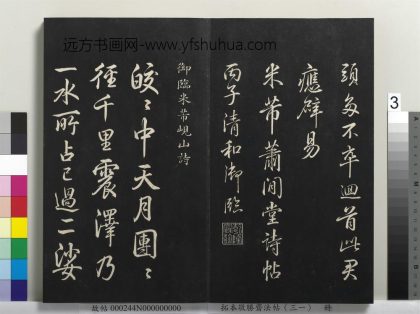 远方书画网-www.yfshuhua.com
頭多不卒迴首此君
應辟易
米芾蕭閒堂詩帖
丙子清和御臨
御臨米芾峴山詩
皎〻中天月團〻
徑千里震澤乃
一水所占已過二娑
3
故帖 000244N000000000
拓本敬勝齋法帖（三一） 冊